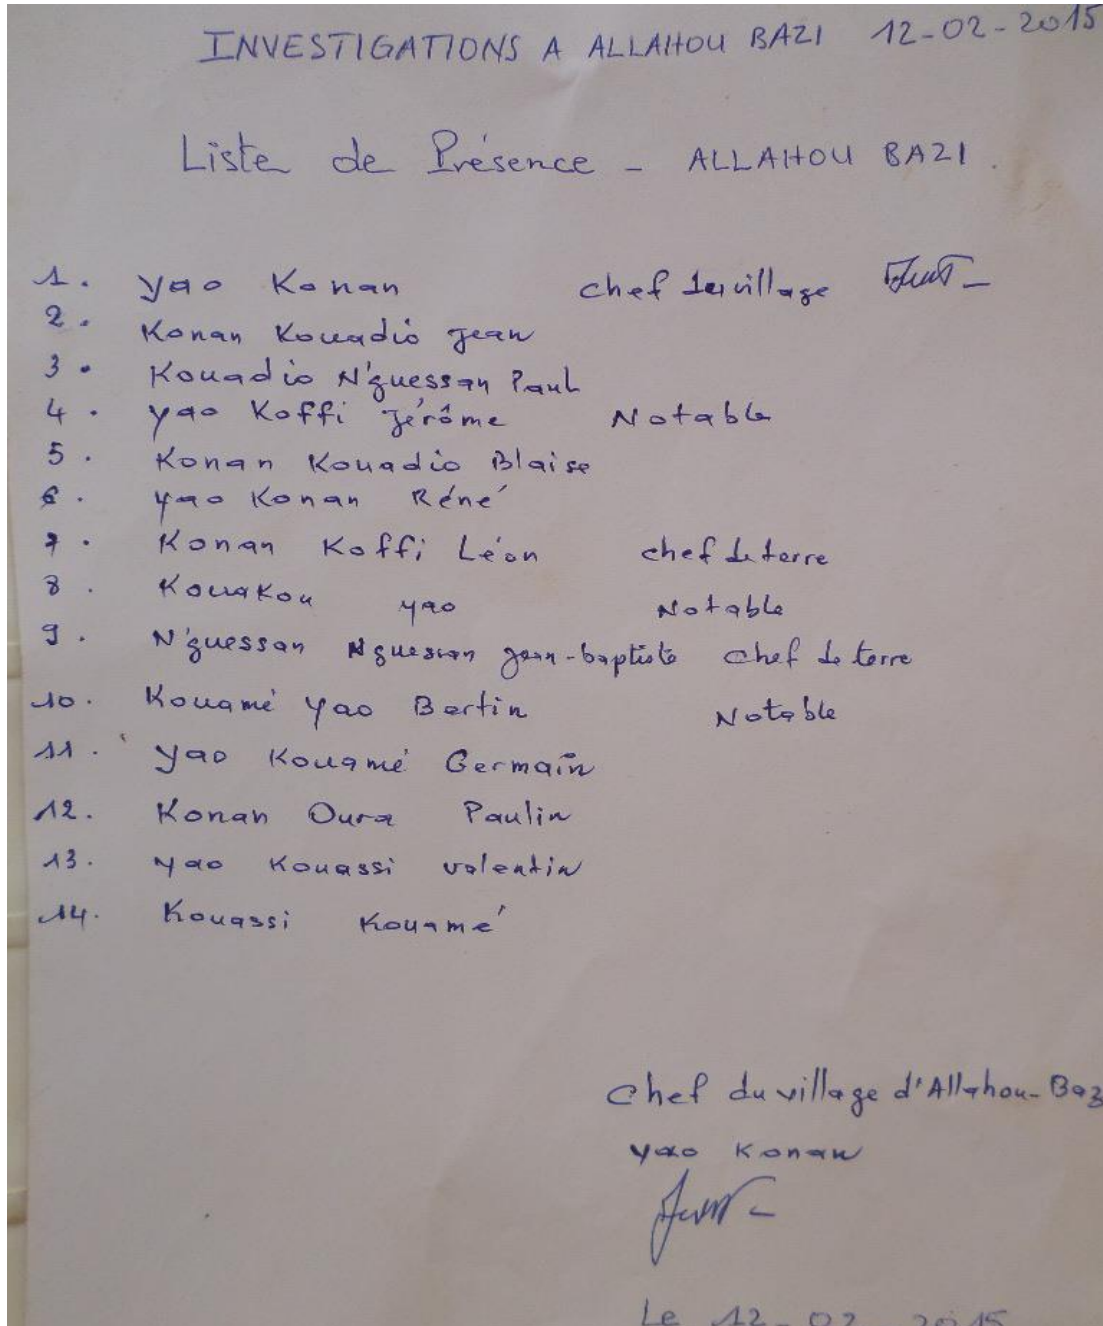 INVESTIGATIONS A ALLAHOU BAZI 12-02-2015
Liste de Présence - ALLAHOU BAZI.
1. Yao Konan chef du village
2. Konan Kouadio Jean
3. Kouadio N'guessan Paul
4. Yao Koffi Jérôme Notable
5. Konan Kouadio Blaise
6. Yao Konan Réné
7. Konan Koffi Léon chef de terre
8. Kouakou Yao Notable
9. N'guessan Nguessan Jean-baptiste chef de terre
10. Kouamé Yao Bertin Notable
11. Yao Kouamé Germain
12. Konan Oura Paulin
13. Yao Kouassi Valentin
14. Kouassi Kouamé
Chef du village d'Allahou-Baz
Yao Konan
Le 12-02 2015